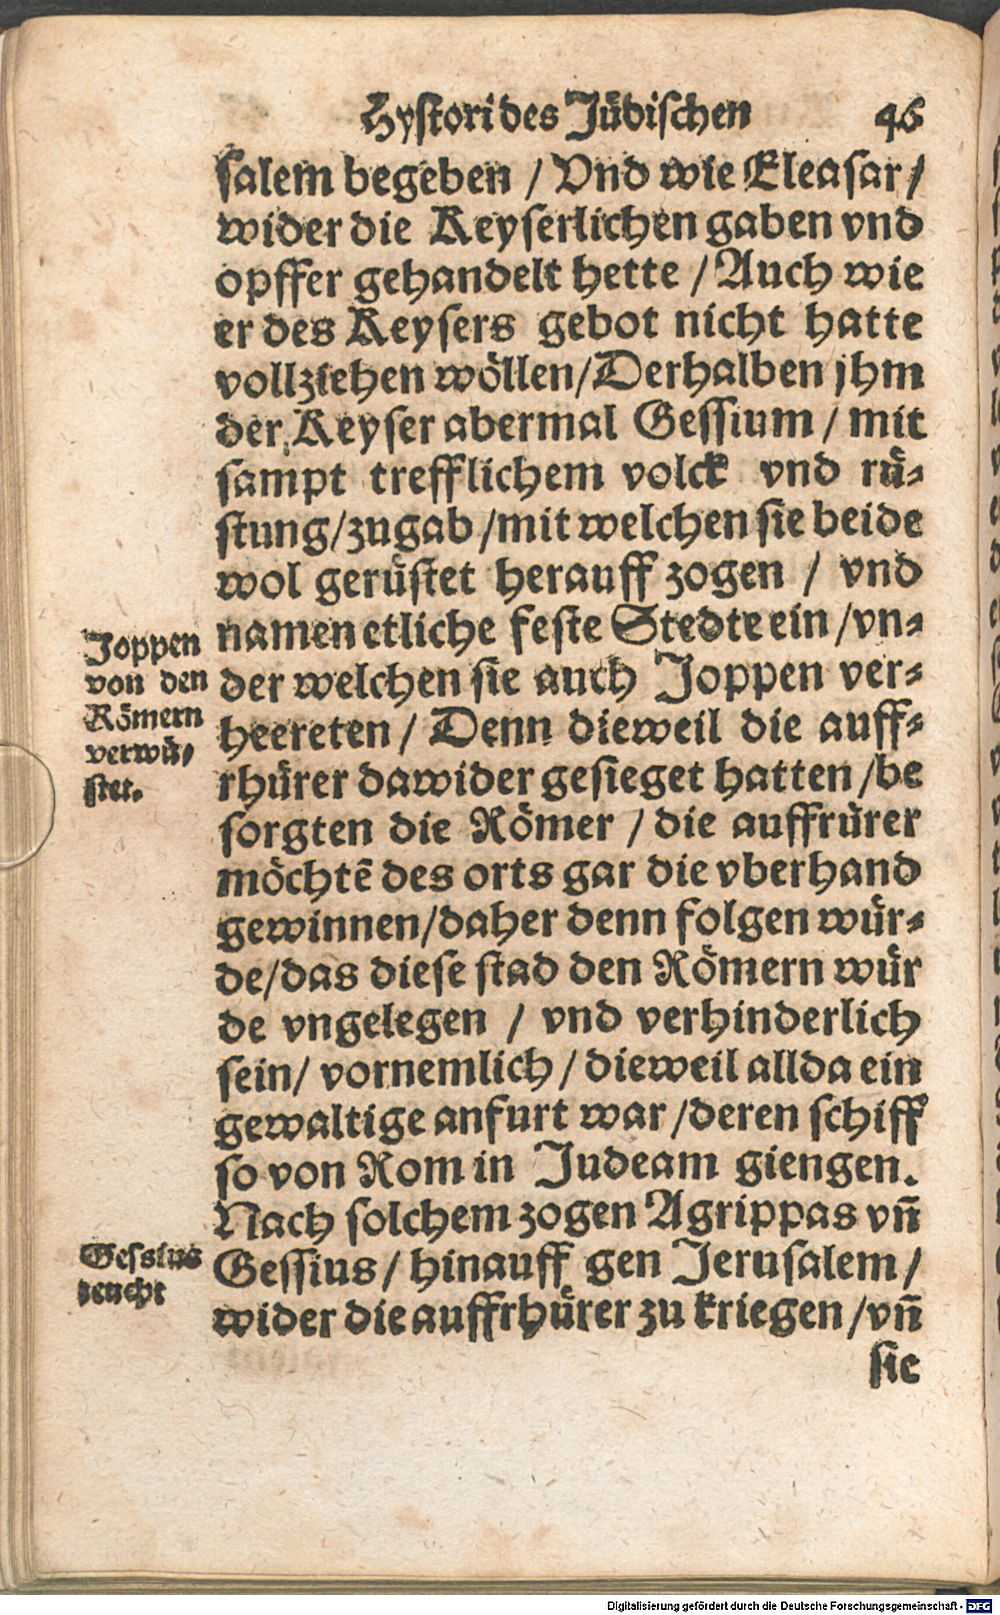 Hystori des Jüdischen 46
salem begeben / Vnd wie Eleasar /
wider die Keyserlichen gaben vnd
opffer gehandelt hette / Auch wie
er des Keysers gebot nicht hatte
vollziehen wöllen/Derhalben jhm
der Keyser abermal Gessium / mit
sampt trefflichem volck vnd rü-
stung/zugab/mit welchen sie beide
wol gerüstet herauff zogen / vnd
namen etliche feste Stedte ein/vn-
der welchen sie auch Joppen ver-
heereten / Denn dieweil die auff-
rhürer dawider gesieget hatten /be
sorgten die Römer / die auffrürer
möchtē des orts gar die vberhand
gewinnen/daher denn folgen wür-
de/das diese stad den Römern wür
de vngelegen / vnd verhinderlich
sein/ vornemlich / dieweil allda ein
gewaltige anfurt war /deren schiff
so von Rom in Judeam giengen.
Nach solchem zogen Agrippas vñ
Gessius/ hinauff gen Jerusalem /
wider die auffrhürer zu kriegen /vñ
sie
Joppen
von den
Römern
verwü-
stet.
Gessius
zeucht
Digitalisierung gefördert durch die Deutsche Forschungsgemeinschaft - DFG